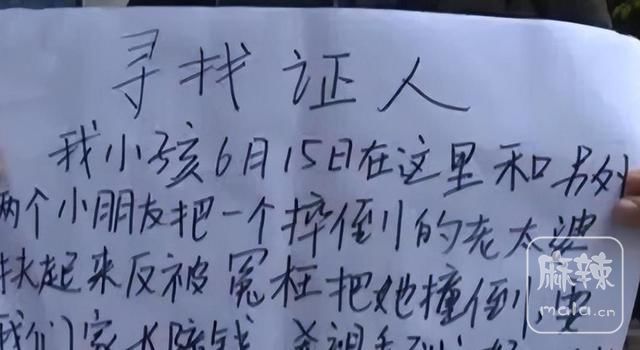 寻找证人
我小孩6月15日在这里和另外
两个小朋友把一个摔倒的老太婆
扶起来反被冤枉把她撞倒要
我们家长赔钱
麻辣
mala.cn